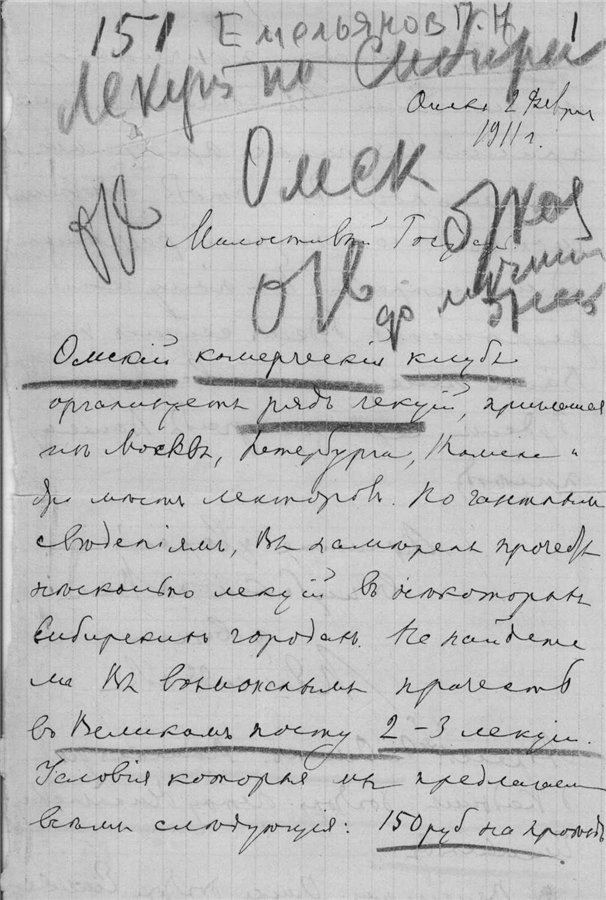 151 Емельянов П. Н 1
Лекции по Сибири
Омскъ 2 Февраля
1911 г.
Омск
Милостивый Государь
до
Омскій комерческій клубъ
организуетъ рядъ лекцій, приглашая
изъ Москвы, Петербурга, Томска и
др мѣстъ лекторовъ. По газетнымъ
свѣдѣніямъ, Вы намѣрены прочесть
нѣсколько лекцій въ нѣкоторыхъ
Сибирскихъ городахъ. Не найдете
ли Вы возможнымъ прочесть
въ Великомъ посту 2–3 лекціи.
Условія которыя мы предлагаемъ
всѣмъ слѣдующія: 150 руб на проѣздъ